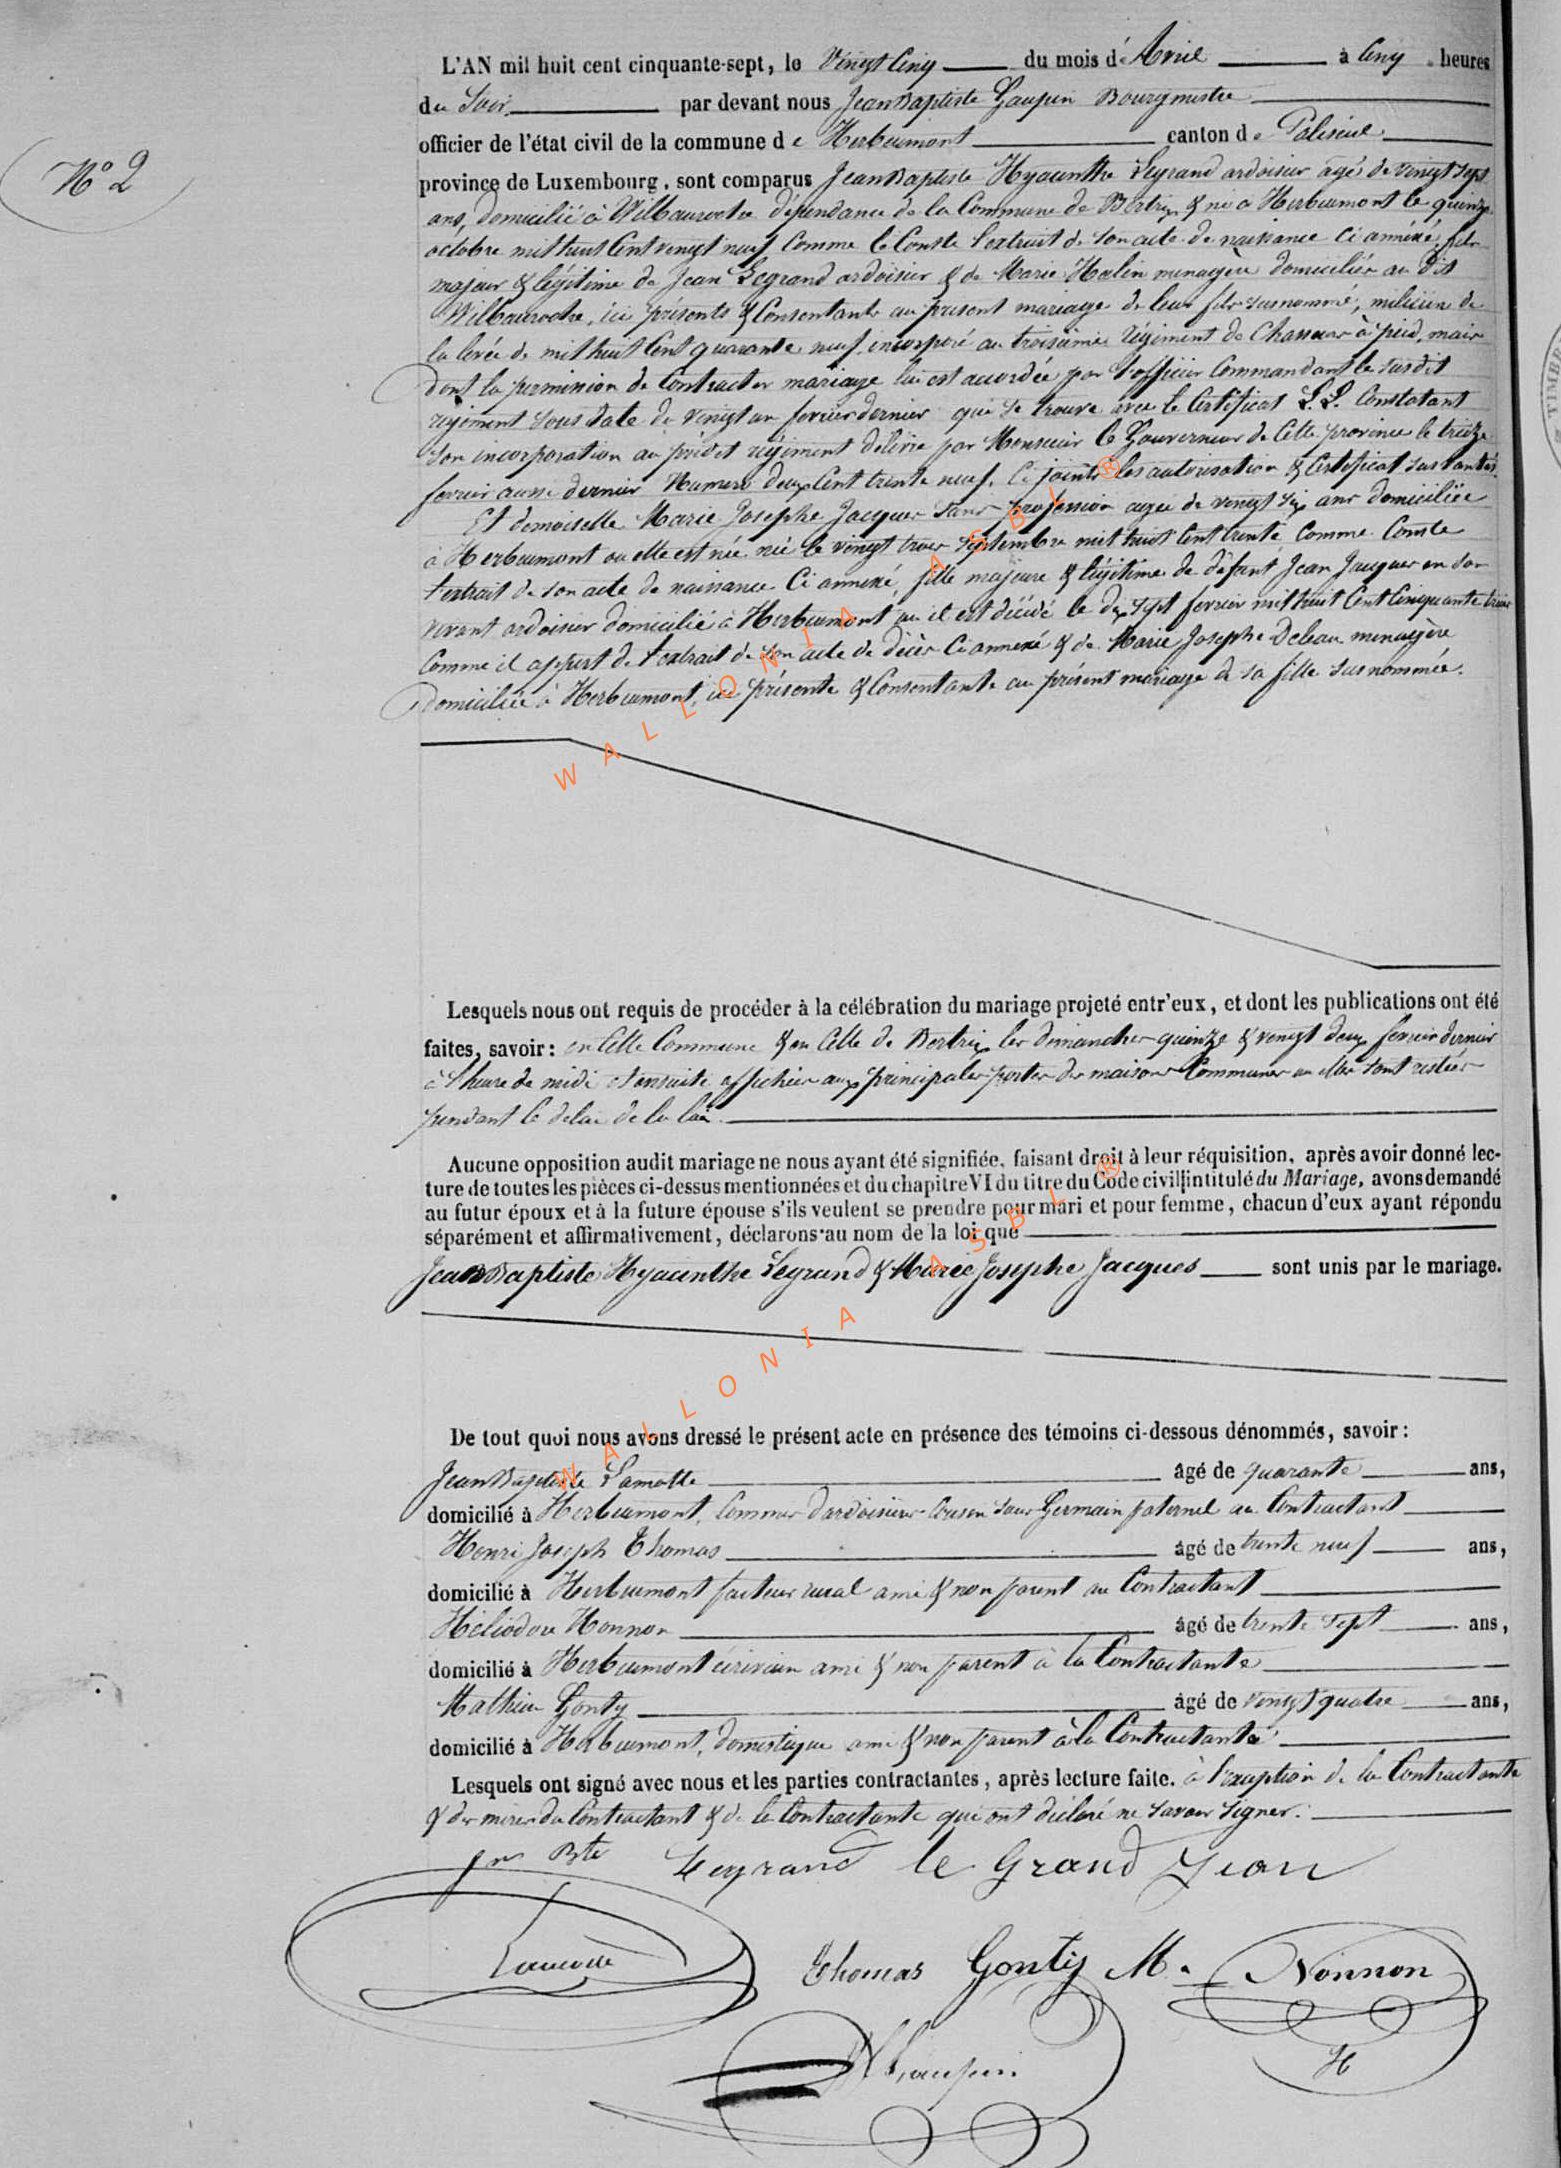 N° 2
L'AN mil huit cent cinquante-sept, le Vingt Cinq du mois d'Avril à Cinq heures
du Soir par devant nous Jean Baptiste Gaupin Bourgmestre
officier de l'état civil de la commune de Herbeumont canton de Paliseul
province de Luxembourg, sont comparus Jean Baptiste Hyacinthe Legrand ardoisier agé de vingt sept
ans, domicilié à Wilbauroche dépendance de la Commune de Bertrix & né à Herbeumont le quinze
octobre mil huit Cent vingt neuf Comme le Conste l'extrait de son acte de naissance Ci annéxé, fils
majeur & légitime de Jean Legrand ardoisier & de Marie Halin menagère domiciliés au dit
Wilbauroche, ici présents & Consentants au présent mariage de leur fils susnommé, milicien de
la levée de mil huit Cent quarante neuf, incorporé au troisième régiment de Chasseurs à pied, mais
dont la permission de Contracter mariage lui est accordée par l'officier Commandant le susdit
régiment sous date du vingt un fevrier dernier qui se trouve avec le Certificat L.L. Constatant
son incorporation au prédit régiment délivré par Monsieur le Gouverneur de Cette province le treize
fevrier aussi dernier Numero deux Cent trente neuf, Ci joints les autorisation & Certificat sus
Et demoiselle Marie Josephe Jacques Sans profession agée de vingt six ans domiciliée
à Herbeumont ou elle est née né le vingt trois septembre mil huit Cent trente Comme Conste
l'extrait de son acte de naissance Ci annexé, fille majeure & légitime de défunt Jean Jacques en son
vivant ardoisier domicilié à Herbeumont ou il est décédé le dix sept fevrier mil huit Cent Cinquante trois
Comme il appert de l'extrait de son acte de décès Ci annexé & de Marie Josephe Deleau menagère
domiciliée à Herbeumont, ici présente & Consentante au présent mariage de sa fille susnommée.
Lesquels nous ont requis de procéder à la célébration du mariage projeté entr'eux, et dont les publications ont été
faites, savoir: en Cette Commune & en Celle de Bertrix les dimanches quinze & vingt deux fevrier dernier
à l'heure de midi & ensuite affichées aux principales portes des maisons Communes ou elles sont restées
pendant le delai de la loi.
Aucune opposition audit mariage ne nous ayant été signifiée, faisant droit à leur réquisition, après avoir donné lec-
ture de toutes les pièces ci-dessus mentionnées et du chapitre VI du titre du Code civil intitulé du Mariage, avons demandé
au futur époux et à la future épouse s'ils veulent se prendre pour mari et pour femme, chacun d'eux ayant répondu
séparément et affirmativement, déclarons au nom de la loi que
Jean Baptiste Hyacinthe Legrand & Marie Josephe Jacques sont unis par le mariage.
De tout quoi nous avons dressé le présent acte en présence des témoins ci-dessous dénommés, savoir:
Jean Baptiste Lamotte âgé de quarante ans,
domicilié à Herbeumont, Commis d'ardoisière Cousin sous Germain paternel au Contractant
Henri Joseph Thomas âgé de trente neuf ans,
domicilié à Herbeumont facteur rural ami & non parent au Contractant
Héliodore Nonnon âgé de trente sept ans,
domicilié à Herbeumont écrivain ami & non parent à la Contractante
Mathieu Gonty âgé de vingt quatre ans,
domicilié à Herbeumont, domestique ami & non parent à la Contractante
Lesquels ont signé avec nous et les parties contractantes, après lecture faite. à l'exception de la Contractante
& des mères du Contractant & de la Contractante qui ont déclaré ne savoir signer.
Jn Bte Legrand le Grand Jean
Lamotte Thomas Gonty M. Nonnon
H
Gaupin
WALLONIA ASBL ®
WALLONIA ASBL ®
TIMBRE